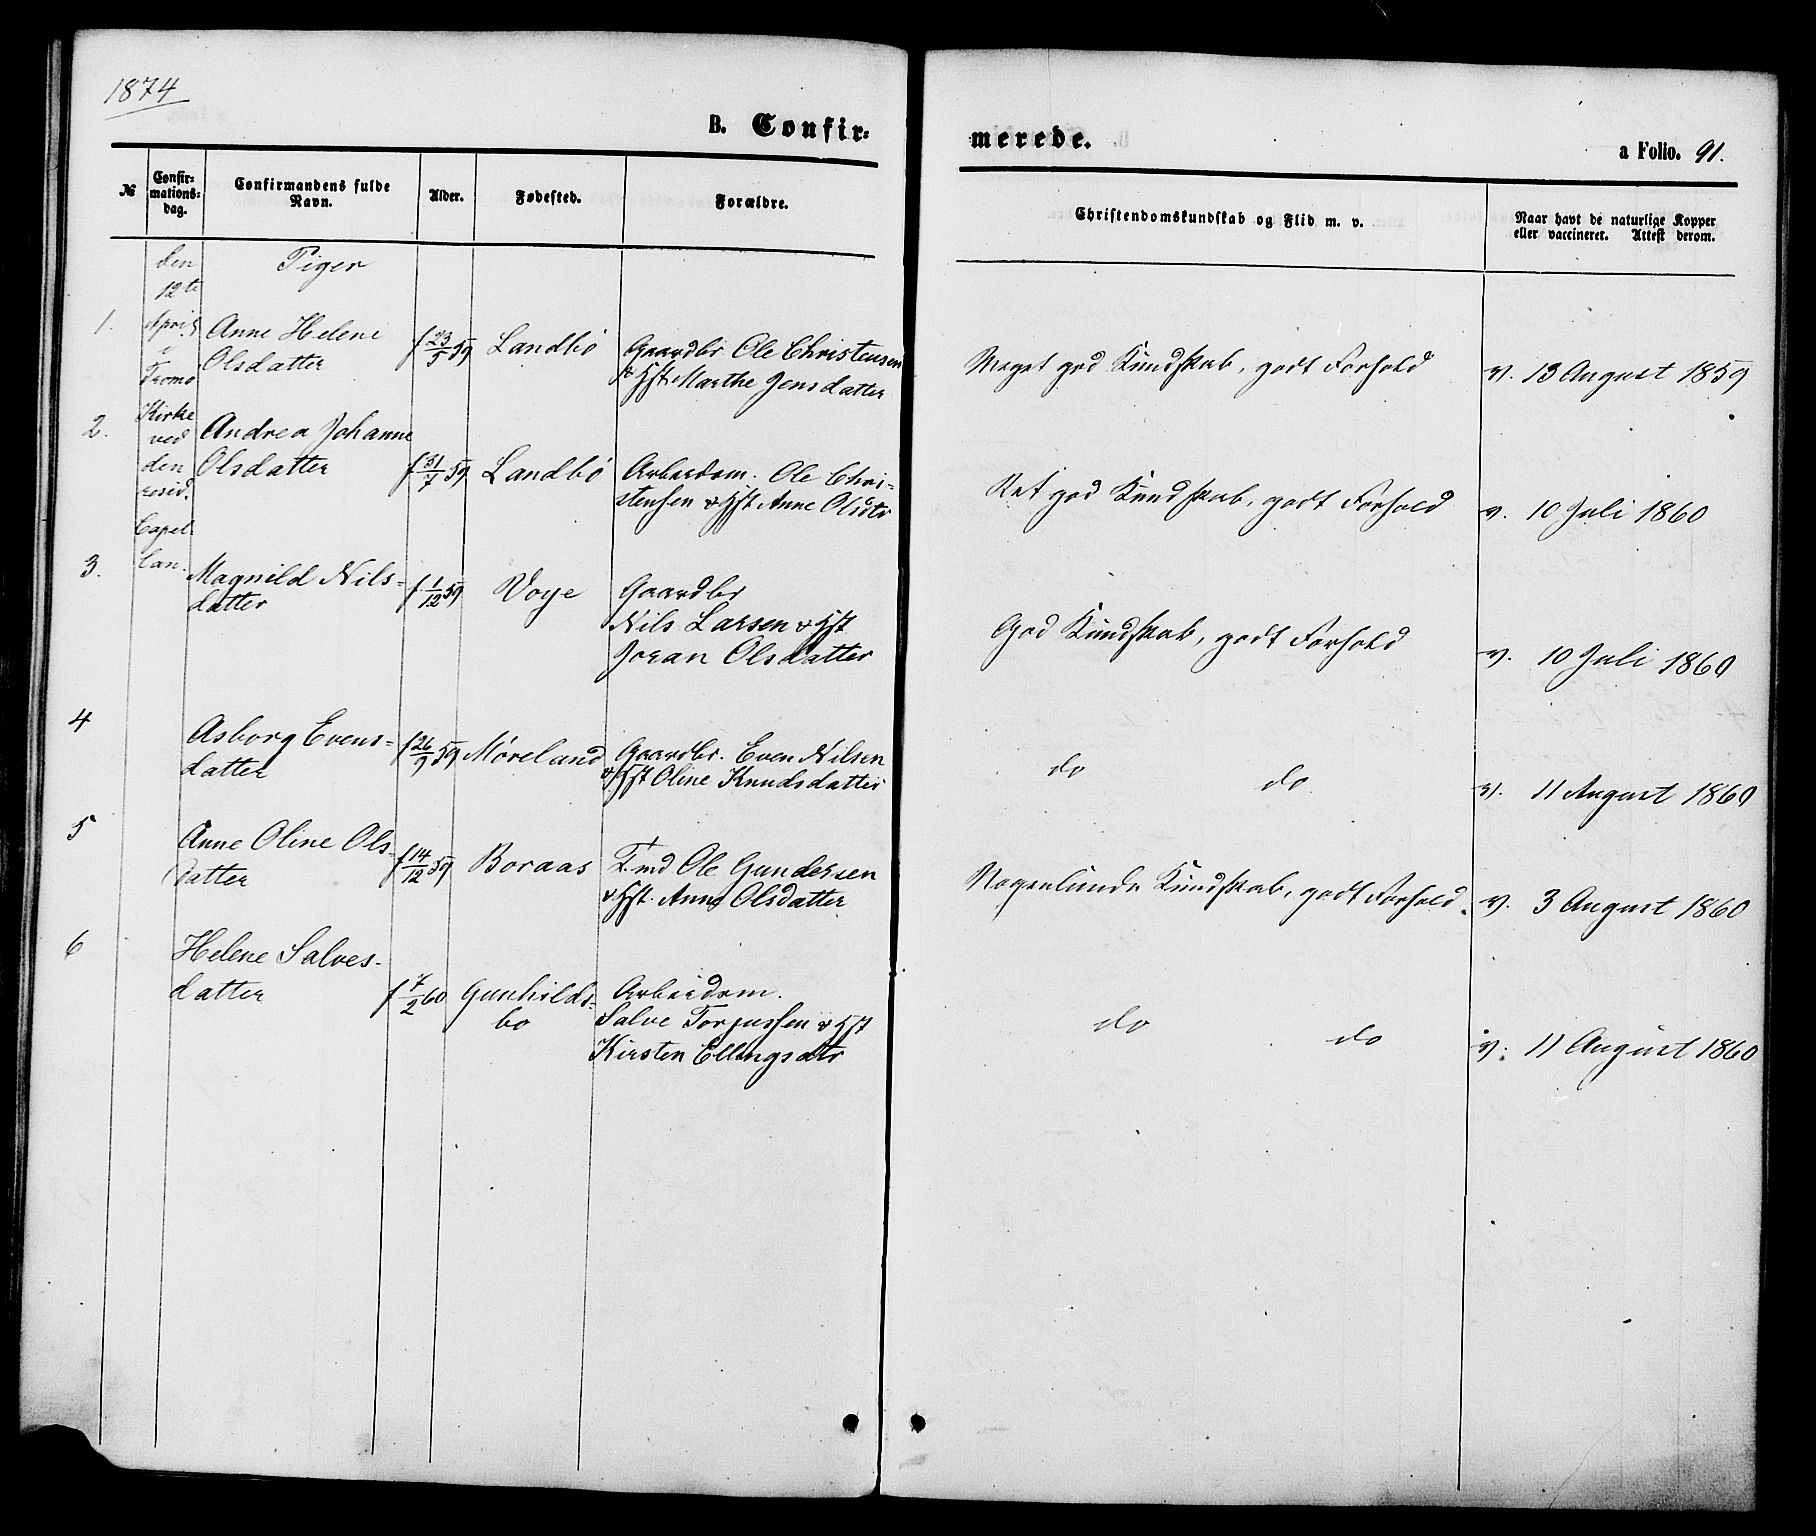 1874
B. Confir-
merede.
a Folio. 91.
№
Confir-
mations-
dag.
Confirmandens fulde
Navn.
Alder.
Fødested.
Forældre.
Christendomskundskab og Flid m. v.
Naar havt de naturlige Kopper
eller vaccineret. Attest derom.
den
12te
April
i
Tromø
Kirke
ved
den
resid.
Capel
lan.
Piger
1.
Anne Helene
Olsdatter
f 23/5 59
Landbö
Gaardbr Ole Christensen
& Hst Marthe Jensdatter
Meget god Kundskab, godt Forhold
v. 13 August 1859
2.
Andrea Johanne
Olsdatter
f 31/7 59
Landbö
Arbeidsm. Ole Chri-
stensen & Hst Anne Olsdtr
Ret god Kundskab, godt Forhold
v. 10 Juli 1860
3.
Magnild Nils-
datter
f 1/12 59
Voye
Gaardbr
Nils Larsen & Hst
Joran Olsdatter
God Kundskab, godt Forhold
v. 10 Juli 1860
4
Asborg Evens-
datter
f 26/9 59
Möreland
Gaardbr. Even Nilsen
& Hst Oline Knudsdatter
do do
v. 11 August 1860
5
Anne Oline Ols-
datter
f 14/12 59
Boraas
T.md Ole Gundersen
& Hst. Anne Olsdatter
Nogenlunde Kundskab, godt Forhold.
v. 3 August 1860
6
Helene Salves-
datter
f 7/2 60
Gunhilds-
bo
Arbeidsm.
Salve Torjussen & Hst
Kirsten Ellingsdtr
do do
v. 11 August 1860